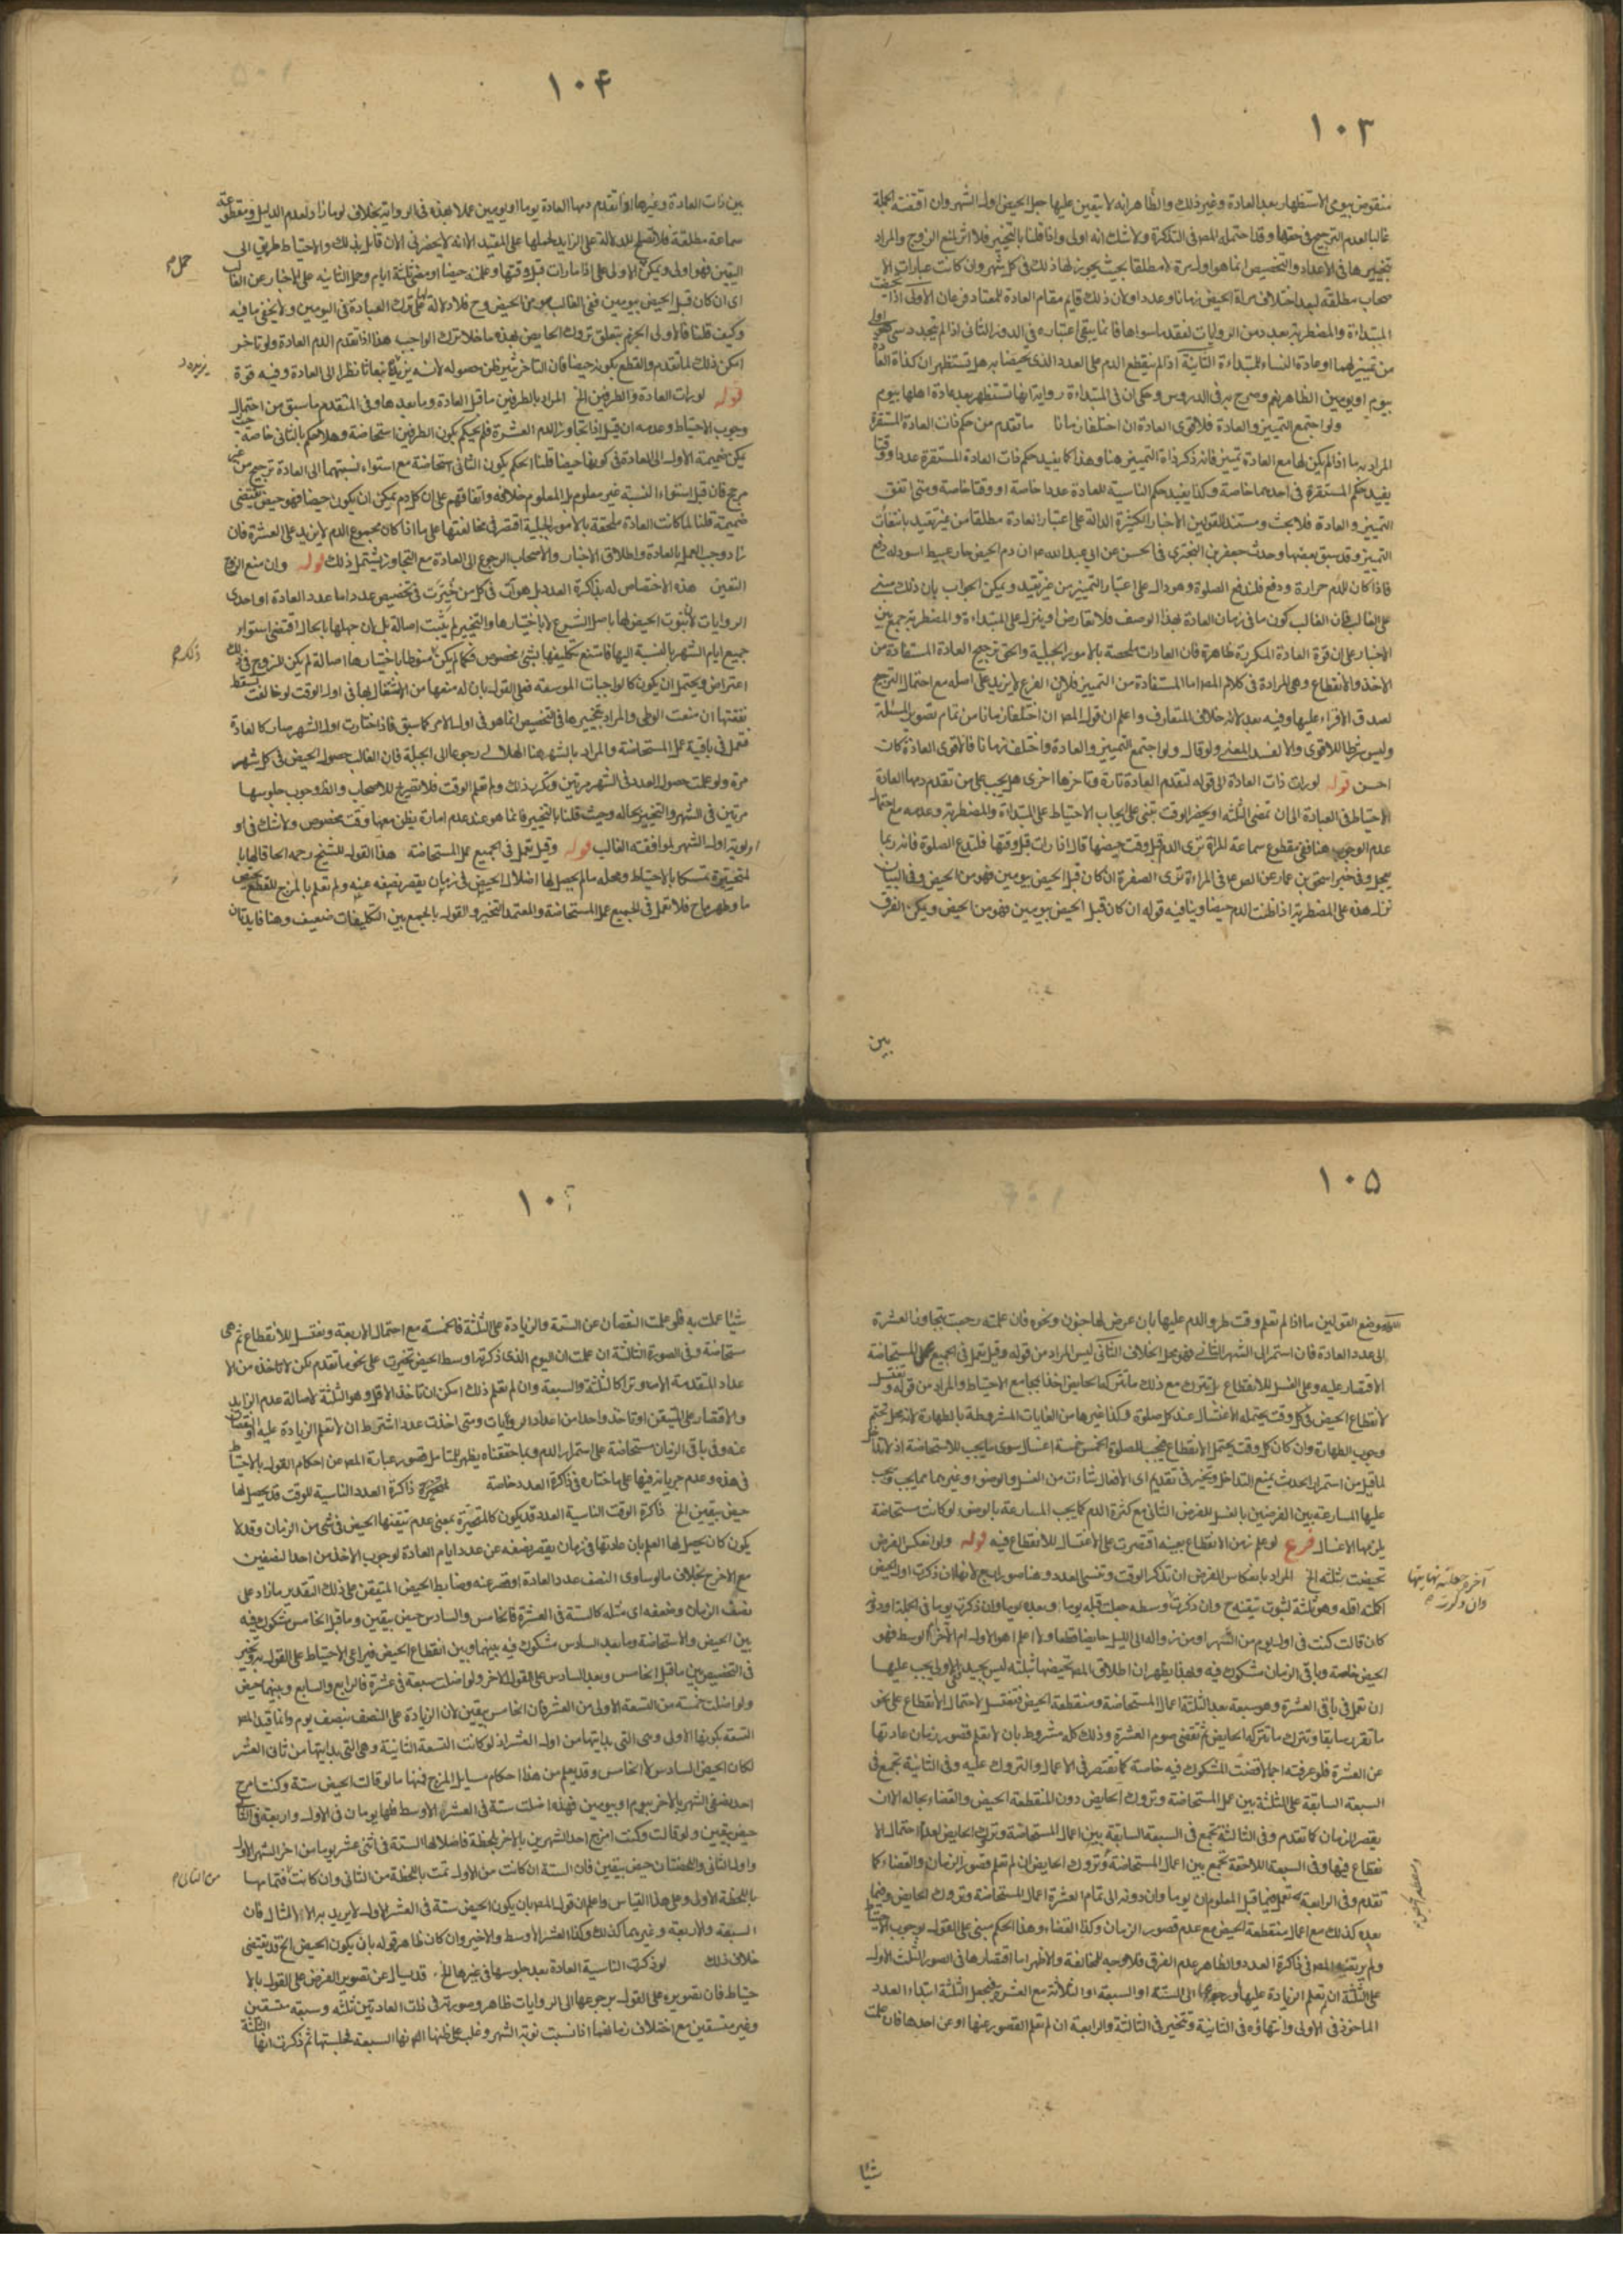 ١٠٣
منقوض بيوى الاستظهار بعد العادة وغير ذلك والظاهر انه لا يتعين عليها جعل الحيض اول الشهر وان اقتضته الجبلة
غالبا لعدم الترجيح فى حقها وقد احتمله المص فى التذكرة ولا شك انه اولى واذا قلنا بالتخيير فلا اثر لمنع الزوج والمراد
بتخييرها فى الاعداد والتخصيص انما هو اول مرة لا مطلقا بحيث يجوز لها ذلك فى كل شهر وان كانت عبارات الا
صحاب مطلقة لبعد اختلاف مراة الحيض زمانا وعددا ولان ذلك قايم مقام العادة للمعتاد فى عان الاولى اذا
المبتداءة والمضطربة بعدد من الروايات لفقد ما سواها فانما يبقى اعتباره فى الدور الثانى اذا لم يتجدد شى
من تمييز لهما او عادة النساء للمبتداءة الثانية اذا لم ينقطع الدم على العدد الذى تحيضنا به هل تستظهران كذاة العا
بيوم او يومين الظاهر نعم وصرح به فى الدروس وحكى ان فى المبتداءة رواية بانها تستظهر بعد عادة اهلها بيوم
ولو اجتمع التمييز والعادة فلاقوى العادة ان اختلفا زمانا ما تقدم من حكم ذات العادة المستقرة
المراد به ما اذا لم يكن لها مع العادة تمييز فانه ذكر ذاة التمييز هنا وهذا كما يفيد حكم ذات العادة المستقرة عددا ووقتا
يفيد حكم المستقرة فى احدهما خاصة وكذا يفيد حكم الناسية للعادة عددا خاصة او وقتا خاصة ومتى اتفق
التمييز والعادة فلا بحث ومستند القولين الاخبار الكثيرة الدالة على اعتبار العادة مطلقا من غير تقييد بانتفاء
التمييز وقد سبق بعضها وحديث جعفر بن البخترى فى الحسن عن ابى عبد الله ع ان دم الحيض حار عبيط اسود له دفع
فاذا كان للدم حرارة ودفع فلتدع الصلوة وهو دال على اعتبار التمييز من غير تقييد ويمكن الجواب بان ذلك مبنى
على الغالب فان الغالب كون ما فى زمان العادة بهذا الوصف فلا تعارض او ينزل على المبتداءة والمضطربة جمعا بين
الاخبار على ان قوة العادة المتكررة ظاهرة فان العادات ملحقة بالامور الجبلية والحق ترجيح العادة المستفادة من
الاخذ والانقطاع وهى المرادة فى كلام المص اما المستفادة من التمييز فلا لان الفرع لا يزيد على اصله مع احتمال الترجيح
لصدق الاقراء عليها وفيه بعد لانه خلاف المتعارف واعلم ان قول المص ان اختلفا زمانا من تمام تصوير المسئلة
وليس شرطا للاقوى والا لفسد المعنى ولو قال ولو اجتمع التمييز والعادة واختلفا زمانا فالاقوى العادة كان
احسن قوله لو رات ذات العادة الى قوله لتقدم العادة تارة وتاخرها اخرى هل يجب على من تقدم دمها العادة
الاحتياط فى العبادة الى ان تمضى الثلثة او يحضر الوقت تبنى على ايجاب الاحتياط على المبتداءة والمضطربة وعدمه مع احتمال
عدم الوجوب هنا ففى مقطوع سماعة المراة ترى الدم قبل وقت حيضها قال اذا رات قبل وقتها فلتدع الصلوة فانه ربما
يعجل وفى خبر اسحق بن عمار عن الص ع فى المراءة ترى الصفرة ان كان قبل الحيض بيومين فهو من الحيض وفى البيان
نزل هذه على المضطربة اذا ظنت الدم حيضا وينافيه قوله ان كان قبل الحيض بيومين فهو من الحيض ويمكن الفرق
بين
١٠۴
بين ذات العادة وغيرها اذا تقدم دمها العادة يوما او يومين عملا بهذه فى الرواية بخلاف لو ما زاد لعدم الدليل ومقطوعة
سماعة مطلقة فلا تصلح للدلالة على الزايد لحملها على المقيد الا انه لا يحضرنى الان قايل بذلك والاحتياط طريق الى
اليقين فهو اولى ويمكن الاولى على اذا ما رات قبل وقتها وعلمته حيضا او مضى ثلثة ايام وحمل الثانيه على الاخبار عن الغالب
اى ان كان قبل الحيض بيومين ففى الغالب هو من الحيض وح فلا دلالة لها على ترك العبادة فى اليومين ولا يخفى ما فيه
وكيف قلنا فالاولى الجزم بتعلق تروك الحايض بهذه ما خلا ترك الواجب هذا اذا تقدم الدم العادة ولو تاخر
امكن ذلك لما تقدم والقطع بكونه حيضا فان التاخر ثير ظن حصوله لانه يزيده انبعاثا نظرا الى العادة وفيه قوة
قوله لو رات العادة والطرفين الخ المراد بالطرفين ما قبل العادة وما بعدها وفى المتقدم ما سبق من احتمال
وجوب الاحتياط وعدمه ان قيل اذا تجاوز الدم العشرة فلم يحكم بكون الطرفين استحاضة وهلا حكم بالثانى خاصة
يمكن ضميمة الاول الى العادة فى كونها حيضا قلنا الحكم بكون الثانى استحاضة مع استواء نسبتهما الى العادة ترجيح من غير
مرجح فان قيل استواء النسبة غير معلوم بل المعلوم خلافه واتفاقهم على ان كل دم يمكن ان يكون حيضا فهو حيض يقتضى
ضميمة قلنا لما كانت العادة ملحقة بالامور الجبلية اقتصر فى مخالفتها على ما اذا كان مجموع الدم لا يزيد على العشرة فان
زاد وجب العمل بالعادة واطلاق الاخبار والاصحاب الرجوع الى العادة مع التجاوز يشتمل ذلك قوله وان منع الزوج
التعين هذه الاختصاص له بذاكرة العدد بل هو آت فى كل من خيرت فى تخصيص عدد اما عدد العادة او احدى
الروايات لثبوت الحيض لها باصل الشرع لا باختيارها والتخيير لم يثبت اصالة بل لان جهلها بحاله اقتضى استواء
جميع ايام الشهر بالنسبة اليها فامتنع تكليفها بشئ مخصوص فكما لم يكن منوطا باختيارها اصالة لم يكن للزوج فى ذلك
اعتراض ويحتمل ان يكون كالواجبات الموسعة فعلى القول بان له منعها من الاشتغال بها فى اول الوقت لو خالفت يسقط
نفقتها ان منعت الوطى والمراد بتخييرها فى التخصيص انما هو فى اول الامر كما سبق فاذا اختارت اول الشهر صار كالعادة
فتعمل فى باقيه عمل المستحاضة والمراد بالشهر هنا الهلالى رجوعا الى الجبلة فان الغالب حصول الحيض فى كل شهر
مرة ولو علمت حصول العدد فى الشهر مرتين وتكرر ذلك ولم تعلم الوقت فلا تصريح للاصحاب والظ وجوب جلوسها
مرتين فى الشهر والتخيير بحاله وحيث قلنا بالتخيير فانما هو عند عدم امارة يظن معها وقت مخصوص ولا شك فى او
اولوية اول الشهر لموافقته الغالب قوله وقيل تعمل فى الجميع عمل المستحاضة هذا القول للشيخ رحمه الحاقا لها با
لمتحيرة تمسكا بالاحتياط ومحله ما لم يحصل لها اضلال الحيض فى زمان يقصر نصفه عنه ولم تعلم بالمزج للقطع بحيض
ما وطهر ماح فلا تعمل فى الجميع عمل المستحاضة والمعتمد التخيير والقول بالجمع بين التكليفات ضعيف وهنا فايدتان
حمل م
يزيده د
ذلك م
١٠۵
موضع القولين ما اذا لم تعلم وقت طرو الدم عليها بان عرض لها جنون ونحوه فان علمته رجعت بتجاوز العشرة
الى عدد العادة فان استمر الى الشهر الثانى فهو محل الخلاف الثانى ليس المراد من قوله وقيل تعمل فى الجميع عمل المستحاضة
الاقتصار عليه وعلى الغسل للانقطاع بل تترك مع ذلك ما تتركه الحايض اخذا بمجامع الاحتياط والمراد من قوله وتغتسل
لانقطاع الحيض فى كل وقت يحتمله الاغتسال عند كل صلوة وكذا غيرها من الغايات المشروطة بالطهارة لانه محل تحتم
وجوب الطهارة وان كان كل وقت يحتمل الانقطاع فيجب للصلوة الخمس خمسة اغسال سوى ما يجب للاستحاضة اذ لا تداخل
لما قيل من استمرار الحدث يمنع التداخل وتخير فى تقديم اى الافعال شاءت من الغسل والوضوء وغيرهما مما يجب ويجب
عليها المسارعة بين الفرضين بالغسل للفرض الثانى مع كثرة الدم كما يجب المسارعة بالوضوء لو كانت مستحاضة
يلزمها الاغسال فرع لو علم زمن الانقطاع بعينه اقتصرت على الاغتسال للانقطاع فيه قوله ولو انعكس الفرض
تحيضت بثلثه الخ المراد بانعكاس الفرض ان تذكر الوقت وتنسى العدد وهنا صور اربع لانها ان ذكرت اول الحيض
اكملته اقله وهو ثلثة لثبوت تيقنه ح وان ذكرت وسطه جعلت قبله يوما وبعده يوما وان ذكرت يوما فى الجملة او دو
كان قالت كنت فى اول يوم من الشهر او من زواله الى الليل حايضا قطعا ولا اعلم اهو الاول ام الاخر ام الوسط فهو
الحيض خاصة وباقى الزمان مشكوك فيه وبهذا يظهر ان اطلاق المص تحيضها بثلثه ليس بجيد ففى الاولى يجب عليها
ان تعمل فى باقى العشرة وهو سبعة بعد الثلثة اعمال المستحاضة ومنقطعة الحيض فتغتسل لاحتمال الانقطاع على نحو
ما تقرر سابقا وتترك ما تتركه الحايض ثم تقضى صوم العشرة وذلك كله مشروط بان لا تعلم قصور زمان عادتها
عن العشرة فلو عرفته اجمالا قضت المشكوك فيه خاصة كما تقتصر فى الاعمال والتروك عليه وفى الثانية تجمع فى
السبعة السابقة على الثلثة بين عمل المستحاضة وتروك الحايض دون المنقطعة الحيض والقضاء بحاله الا ان
يقصر الزمان كما تقدم وفى الثالثة تجمع فى السبعة السابقة بين اعمال المستحاضة وتروك الحايض لعدم احتمال الا
نقطاع فيها وفى السبعة اللاحقة تجمع بين اعمال المستحاضة وتروك الحايض ان لم تعلم قصور الزمان والقضاء كما
تقدم وفى الرابعة تعمل فيما قبل المعلوم ان يوما وان دونه الى تمام العشرة اعمال المستحاضة وتروك الحايض وفيما
بعده كذلك مع اعمال منقطعة الحيض مع عدم قصور الزمان وكذا القضاء وهذا الحكم مبنى على القول بوجوب الاحتياط
ولم يرتضه المص فى ذاكرة العدد والظاهر عدم الفرق فلا وجه للمخالفة والاظهر اما اقتصارها فى الصور الثلث الاول
على الثلثة ان لم تعلم الزيادة عليها او رجوعها الى الستة او السبعة او الثلاثة مع العشرة فيجعل الثلثة ابتداء العدد
الماخوذ فى الاولى وانتهاؤه فى الثانية وتتخير فى الثالثة والرابعة ان لم تعلم القصور عنها او عن احدها فان علمت
شيئا
آخره جعلته نهايتها
وان ذكرت م
١٠
شيئا عملت به فلو علمت النقصان عن الستة والزيادة على الثلثة فالخمسة مع احتمال الاربعة وتغتسل للانقطاع ثم هى
مستحاضة وفى الصورة الثالثة ان علمت ان اليوم الذى ذكرته اوسط الحيض تحيرت على نحو ما تقدم لكن لا تاخذ من الا
عداد المتقدمة الا ما وترا كالثلثة والسبعة وان لم تعلم ذلك امكن ان تاخذ الاقل وهو الثلثة لاصالة عدم الزايد
والاقتصار على المتيقن او تاخذ واحدا من اعداد الروايات ومتى اخذت عددا اشترط ان لا تعلم الزيادة عليه او نقصان
عنه وفى باقى الزمان مستحاضة على استمرار الدم وبما حققناه يظهر للمتامل قصور عبارة المص عن احكام القول بالاحتياط
فى هذه وعدم جريانه فيها على ما اختاره فى ذاكرة العدد خاصة ذاكرة العدد الناسية للوقت قد يحصل لها
حيض بيقين الخ ذاكرة الوقت الناسية العدد قد يكون كالمتحيرة بمعنى عدم تيقنها الحيض فى شى من الزمان وقد لا
يكون كان يحصل لها العلم بان عادتها فى زمان يقصر نصفه عن عدد ايام العادة لوجوب الاخذ من احد النصفين
مع الاخر ح بخلاف ما لو ساوى النصف عدد العادة او قصر عنه وضابط الحيض المتيقن على ذلك التقدير ما زاد على
نصف الزمان وضعفه اى مثله كالستة فى العشرة فالخامس والسادس حيض بيقين وما قبل الخامس مشكوك فيه
بين الحيض والاستحاضة وما بعد السادس مشكوك فيه بينهما وبين انقطاع الحيض فيراعى الاحتياط على القول به وتخير
فى التخصيص بين ما قبل الخامس وبعد السادس على القول الاخر ولو اضلت سبعة فى عشرة فالرابع والسابع وبينهما حيض
ولو اضلت خمسة من التسعة الاولى من العشر فان الخامس بيقين لان الزيادة على النصف بنصف يوم وانما قيد المص
التسعة بكونها الاولى وهى التى بدايتها من اول العشر اذ لو كانت التسعة الثانية وهى التى بدايتها من ثانى العشر
لكان الحيض السادس لا الخامس وقد يعلم من هذا احكام مسايل المزج فمنها ما لو قالت الحيض ستة وكنت امزج
احد نصفى الشهر بالاخر بيوم او بيومين فهذه اضلت ستة فى العشر الاوسط فلها يومان فى الاول واربعة فى الثانى
حيض بيقين ولو قالت وكنت امزج احد الشهرين بالاخر بلحظة فاضلالها الستة فى اثنى عشر يوما من اخر الشهر الاول
واول الثانى واللحظتان حيض بيقين فان الستة ان كانت من الاول تمت باللحظة من الثانى وان كانت فتمامها
باللحظة الاولى وعلى هذا القياس واعلم ان قول المص بان يكون الحيض ستة فى العشر الاول لا يريد به الا المثال فان
السبعة والاربعة وغيرهما كذلك وكذا العشر الاوسط والاخير وان كان ظاهر قوله بان يكون الحيض الخ قد يقتضى
خلاف ذلك لو ذكرت الناسية العادة بعد جلوسها فى غيرها الخ قد يسال عن تصوير الفرض على القول بالا
حتياط فان تصويره على القول برجوعها الى الروايات ظاهر وصورته فى ذات العادتين ثلثة وسبعة متسقين
وغير متسقين مع اختلاف زمانهما اذا نسيت نوبة الشهر وغلب على ظنها انها السبعة فجلستها ثم ذكرت انها الثلثة
من الثانى م